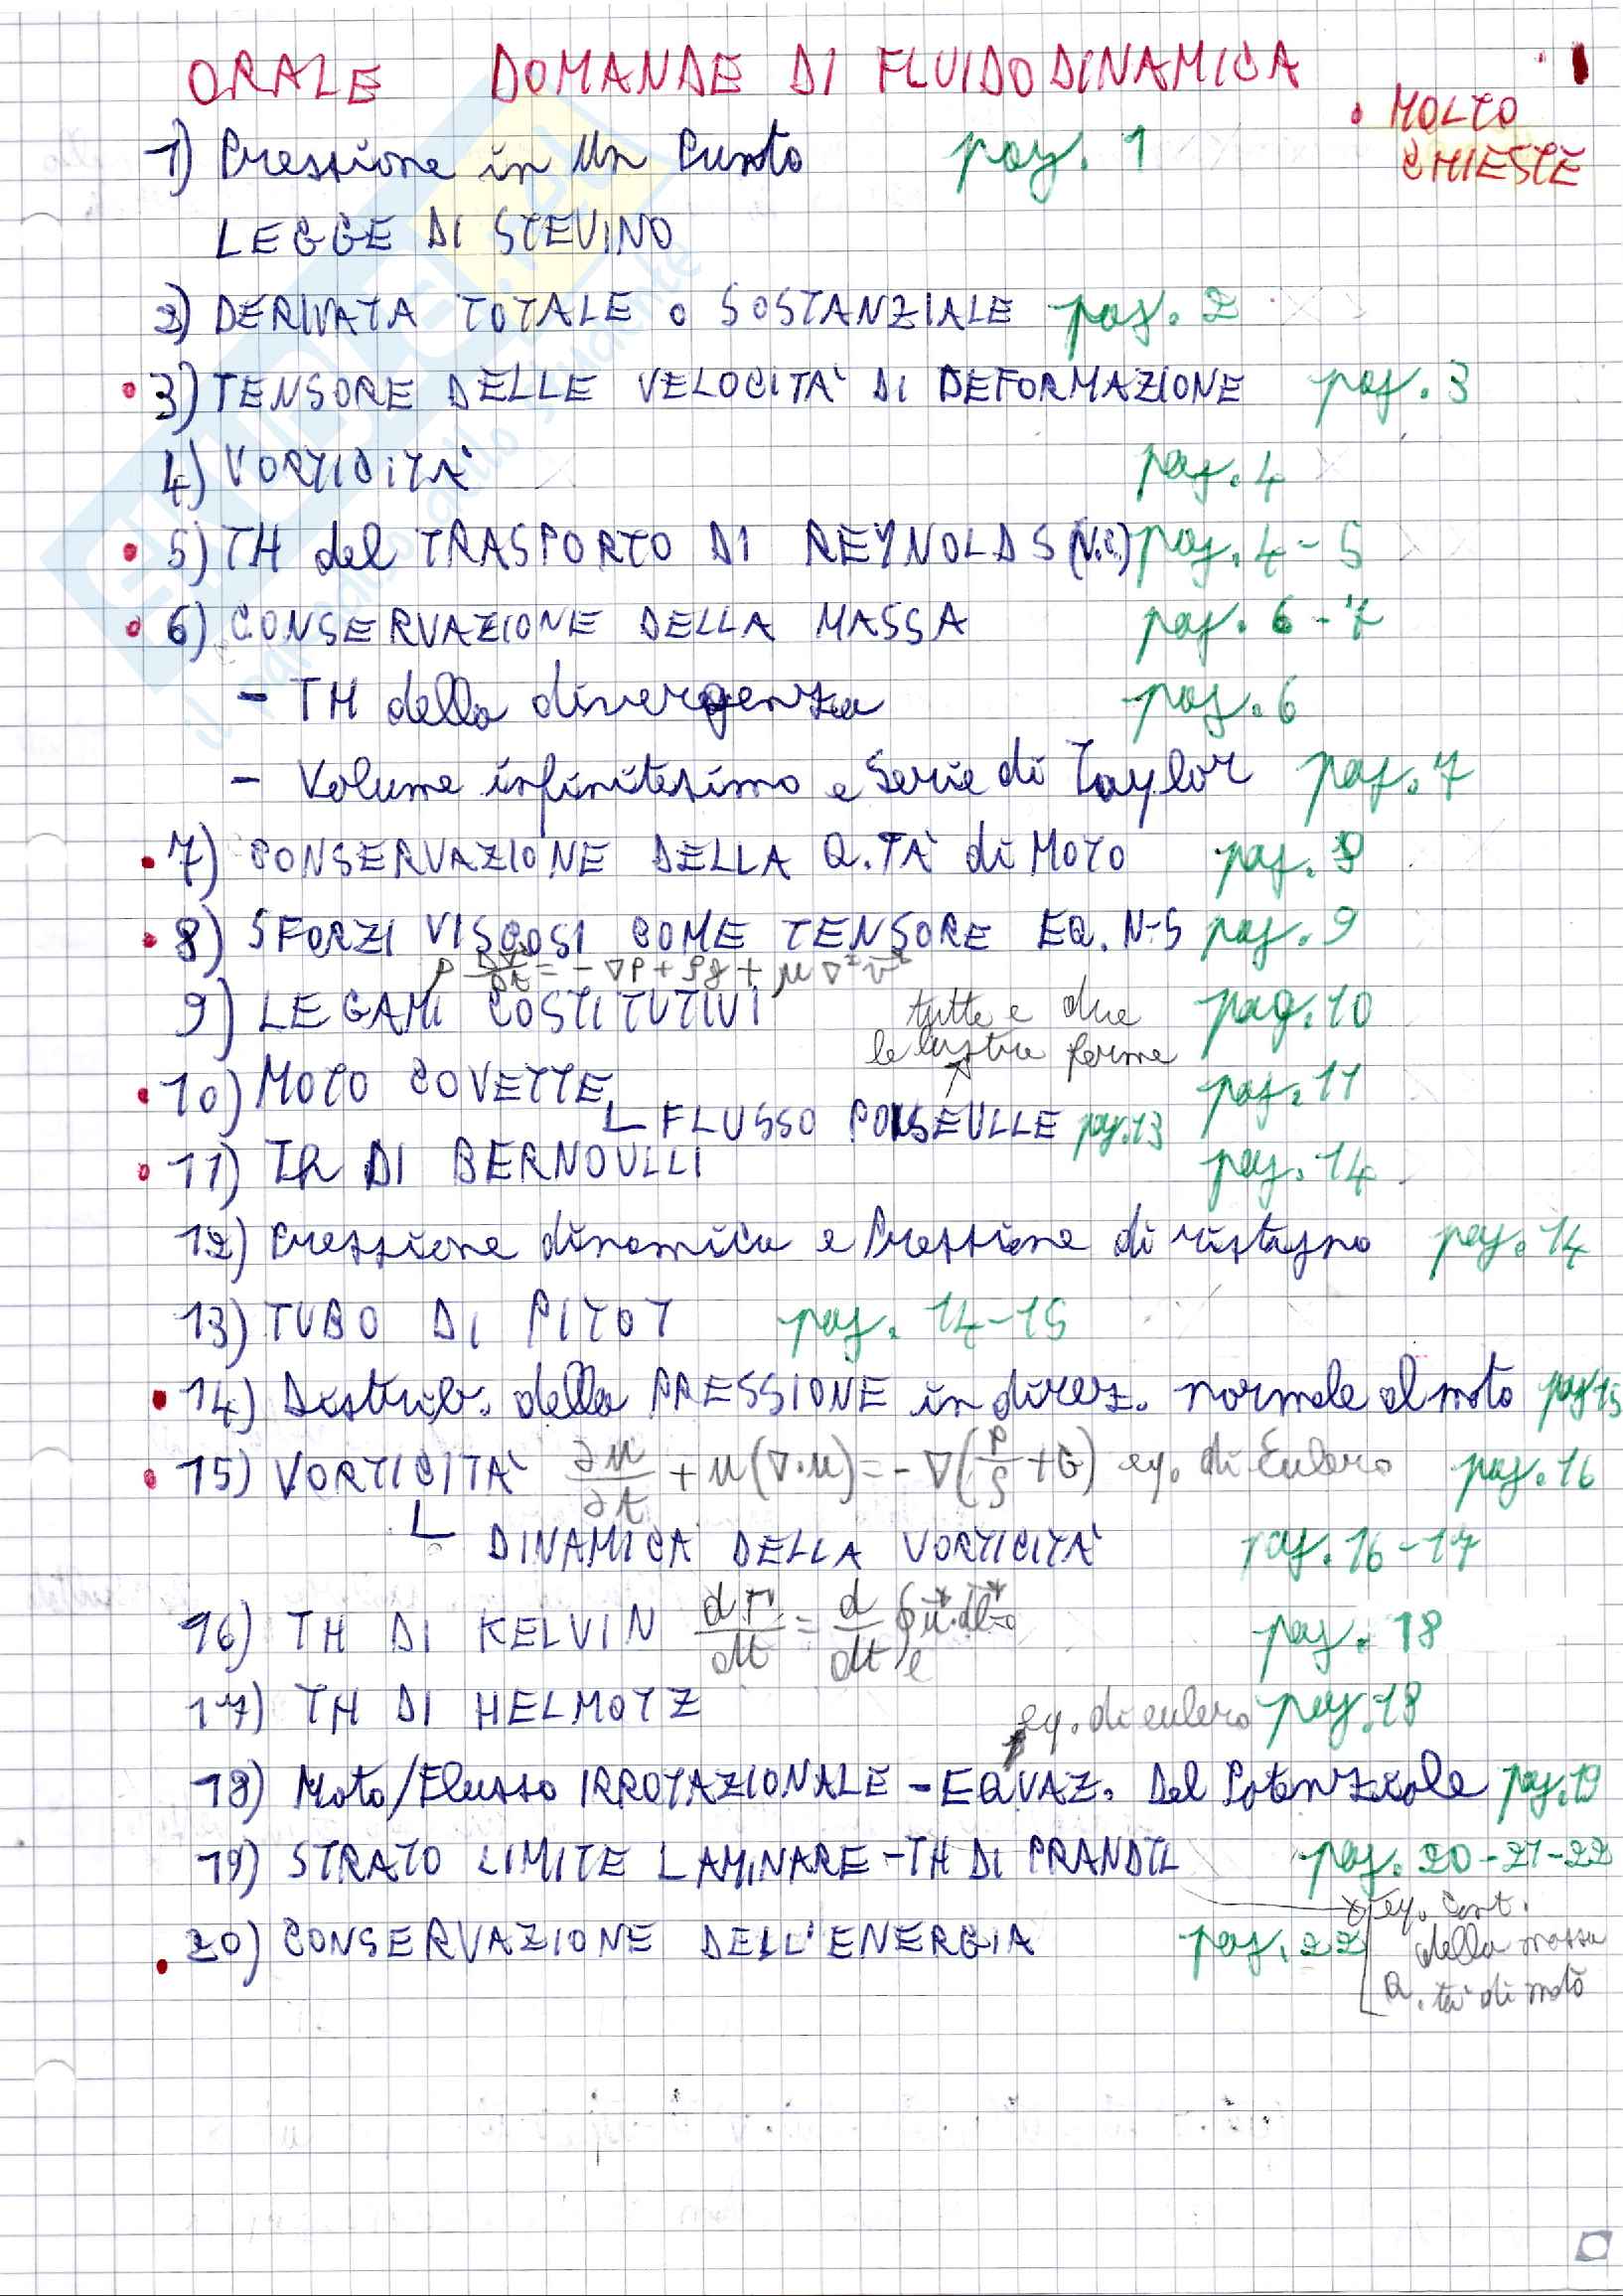 ORALE DOMANDE DI FLUIDODINAMICA
• MOLTO CHIESTE
1) Pressione in un Punto pag. 1
LEGGE DI STEVINO
2) DERIVATA TOTALE o SOSTANZIALE pag. 2
• 3) TENSORE DELLE VELOCITA' DI DEFORMAZIONE pag. 3
4) VORTICITA' pag. 4
• 5) TH del TRASPORTO DI REYNOLDS (V.C.) pag. 4-5
• 6) CONSERVAZIONE DELLA MASSA pag. 6-7
- TH della divergenza pag. 6
- Volume infinitesimo e Serie di Taylor pag. 7
• 7) CONSERVAZIONE DELLA Q.TA' di MOTO pag. 8
• 8) SFORZI VISCOSI COME TENSORE EQ. N-S pag. 9
ρ Dv/Dt = - ∇P + ρg + μ ∇² v
9) LEGAMI COSTITUTIVI pag. 10
tutte e due
le lastre ferme
• 10) MOTO COUETTE pag. 11
∟ FLUSSO POISEULLE pag. 13
• 11) Th DI BERNOULLI pag. 14
12) Pressione dinamica e Pressione di ristagno pag. 14
13) TUBO DI PITOT pag. 14-15
• 14) Distrib. della PRESSIONE in direz. normale al moto pag 15
• 15) VORTICITA' ∂u/∂t + u(∇·u) = - ∇(P/ρ + G) eq. di Eulero pag. 16
∟ DINAMICA DELLA VORTICITA' pag. 16-17
16) TH DI KELVIN dΓ/dt = d/dt ∮ u·dl=0 pag. 18
17) TH DI HELMOTZ pag. 18
eq. di eulero
18) Moto/Flusso IRROTAZIONALE - EQUAZ. Del Potenziale pag. 19
19) STRATO LIMITE LAMINARE - TH DI PRANDTL pag. 20-21-22
eq. cont.
della massa
Q.tà di moto
• 20) CONSERVAZIONE DELL'ENERGIA pag. 22
il paradiso dello studente